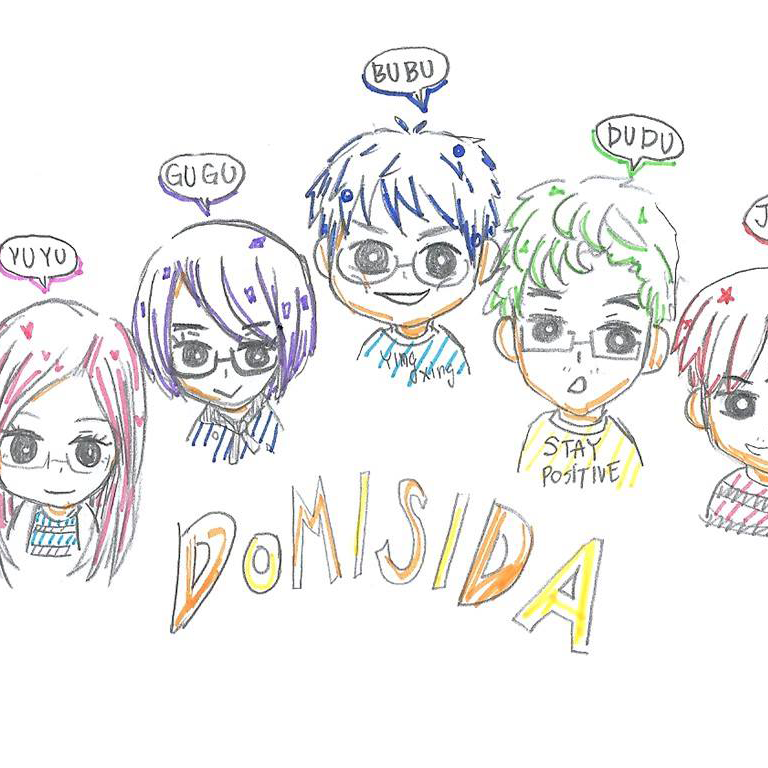 YUYU
GUGU
BUBU
DUDU
J
Ying
xing
STAY
POSITIVE
DOMISIDA